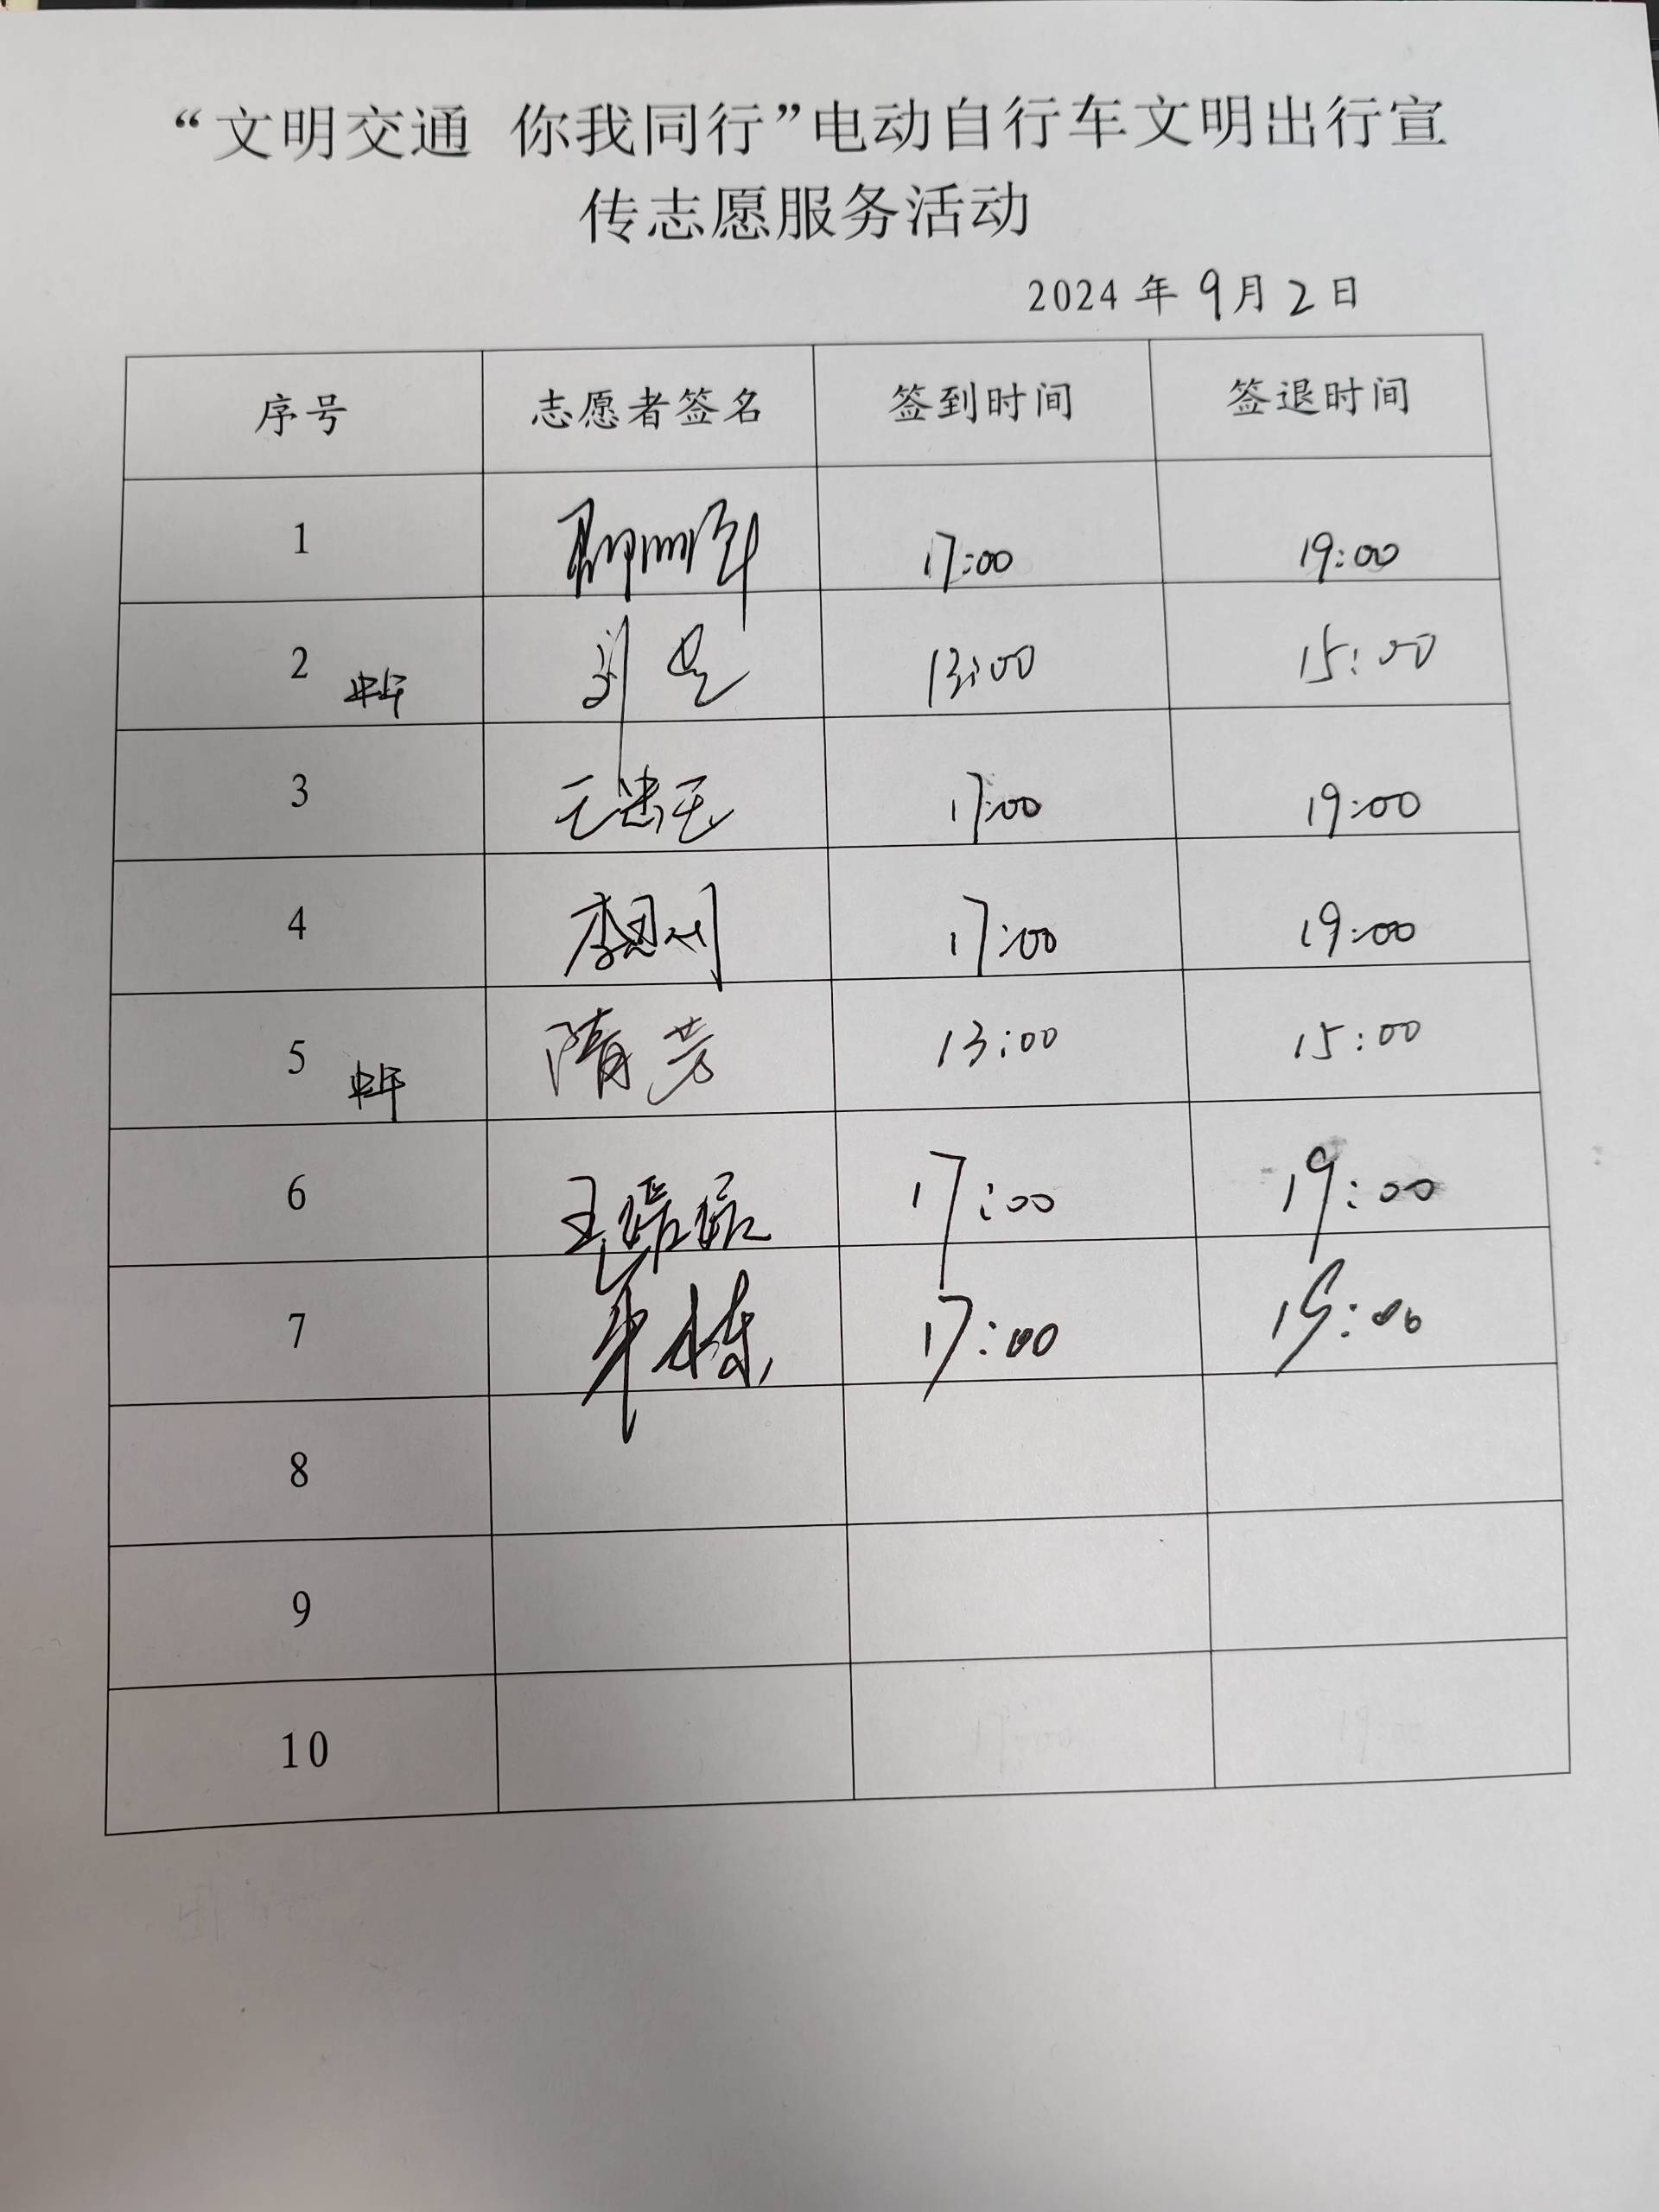 “文明交通 你我同行”电动自行车文明出行宣
传志愿服务活动
2024 年 9 月 2 日
序号 志愿者签名 签到时间 签退时间
1 17:00 19:00
2 中午 刘 13:00 15:00
3 17:00 19:00
4 李 17:00 19:00
5 中午 隋芳 13:00 15:00
6 王 17:00 19:00
7 牟栋 17:00 19:00
8
9
10